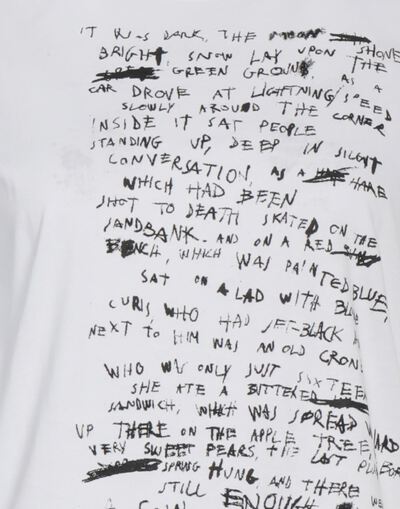 IT WAS DARK, THE MOON SHONE
BRIGHT, SNOW LAY UPON THE
GREEN GROUND, AS A
CAR DROVE AT LIGHTNING SPEED
SLOWLY AROUND THE CORNER
INSIDE IT SAT PEOPLE
STANDING UP, DEEP IN SILENT
CONVERSATION, AS A HARE
WHICH HAD BEEN
SHOT TO DEATH SKATED ON THE
SANDBANK. AND ON A RED
BENCH, WHICH WAS PAINTED BLUE,
SAT ON A LAD WITH
CURLS WHO HAD JET-BLACK
NEXT TO HIM WAS AN OLD CRONE
WHO WAS ONLY JUST SIXTEE
SHE ATE A BUTTERED
SANDWICH, WHICH WAS SPREAD
UP THERE ON THE APPLE TREE
VERY SWEET PEARS, THE LAST
SPRUNG HUNG, AND THERE
STILL ENOUGH